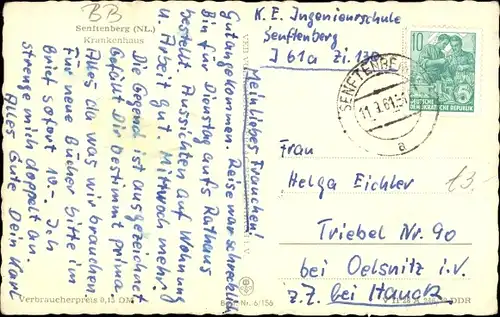 BB
Senftenberg (NL.)
Krankenhaus
K. E. Ingenieurschule
Senftenberg
J 61a Zi. 130
10
DEUTSCHE
DEMOKRATISCHE REPUBLIK
SENFTENBERG
11.9.61
a
Mein liebes Frauchen!
Gut angekommen. Reise war schrecklich
Bin für Dienstag aufs Rathaus
bestellt. Aussichten auf Wohnung
u. Arbeit gut. Mittwoch mehr.
Die Gegend ist ausgezeichnet
Gefällt Dir bestimmt prima
Alles da was wir brauchen.
Für neue Bücher bitte im
Brief sofort 10.- Ich
strenge mich doppelt an.
Alles Gute Dein Karl
Frau
Helga Eichler
13.-
Triebel Nr. 90
bei Oelsnitz i.V.
z.Z. bei Hauck
Verbraucherpreis 0,15 DM
Best.-Nr. 6/156
DDR